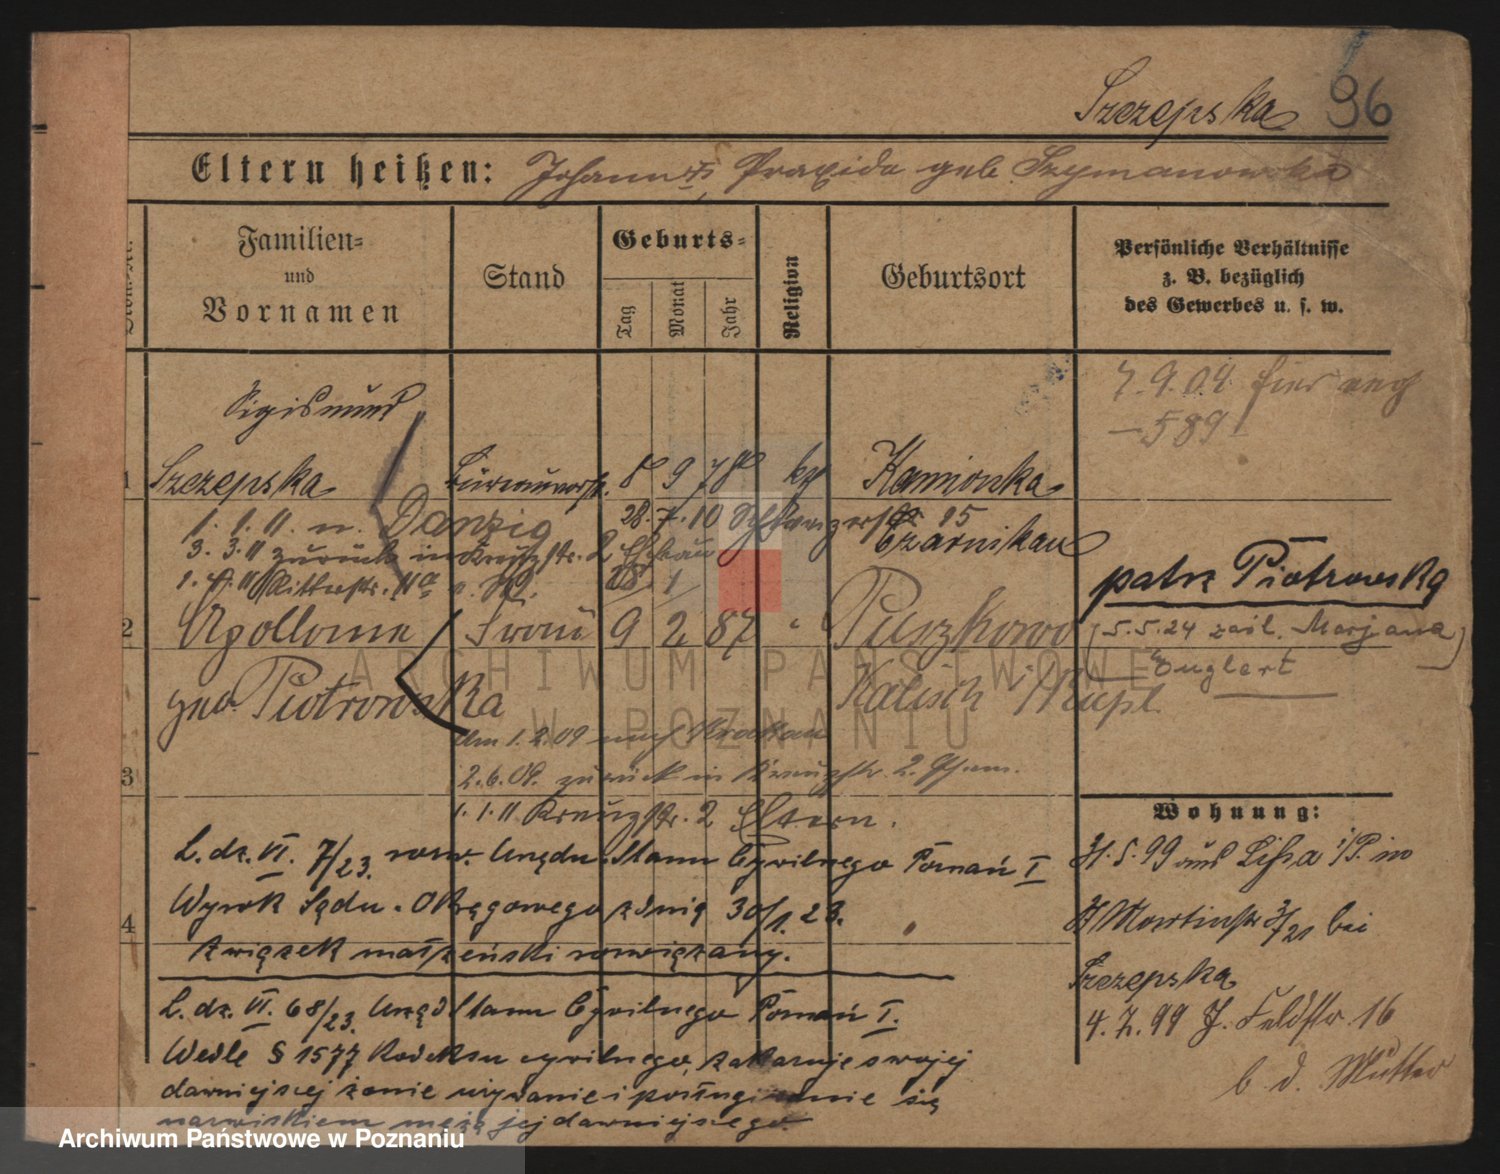 Szczepska 96
Eltern heißen: Johann †, Praxida geb. Szymanowska
Familien-
und
Vornamen
Stand
Geburts-
Tag
Monat
Jahr
Religion
Geburtsort
Persönliche Verhältnisse
z. B. bezüglich
des Gewerbes u. s. w.
7.9.04
– 589 –
Sigismund
1 Szczepska 8 9 78 kg Kamionka
1.1.11. n. Danzig 28.7.10 15
Czarnikau
3.3.11 zurück in Kreuzstr. 2
1. 11 Ritterstr. 11a
patrz Piotrowska
2 Apollonia Frau 9 2 87 " Puszkowo
(5.5.24 Marjanna
Englert)
geb. Piotrowska Kalisch
ARCHIWUM PAŃSTWOWE
W POZNANIU
Am 1.2.09 nach Krakau
3 2.6.09. zurück in Kreuzstr. 2.
1.1.11 Kreuzstr. 2 Eltern.
Wohnung:
L. dz. VI. 7/23. Urzędu Stanu Cywilnego Poznań I
31.5.99 aus Lissa i/P. in
Wyrok Sądu Okręgowego z dnia 30/1. 23.
St Martinstr 3/21 bei
4 związek małżeński rozwiązany.
Szczepska
L. dz. VI. 68/23. Urząd Stanu Cywilnego Poznań I.
4.7.99 Feldstr. 16
Wedle § 1577 Kodeksu cywilnego, zakazuje swojej
b. d. Mutter
dawniejszej żonie używanie i posługiwanie się
nazwiskiem męża jej dawniejszego.
Archiwum Państwowe w Poznaniu